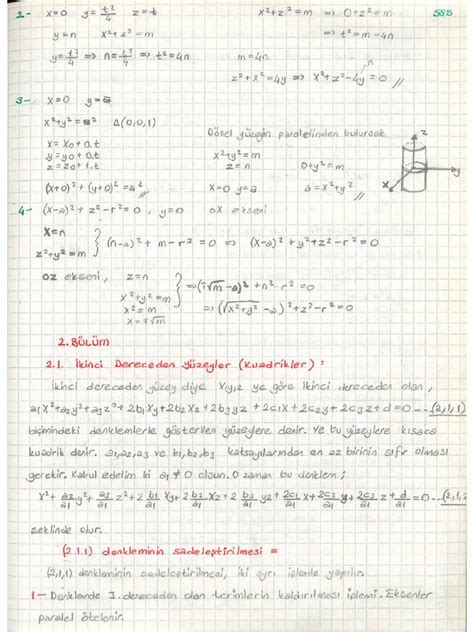 2- x=0 y=t²/4 z=t x²+z²=m ⇒ 0+z²=m 585
y=n x²+z²=m ⇒ t²=m=4n
y=t²/4 ⇒ n=t²/4 ⇒ t²=4n m=4n
z²+x²=4y ⇒ x²+z²-4y=0 //
3- x=0 y=a
x²+y²=a² Δ(0,0,1) Dönel yüzeyin paralelinden bulursak
x=x₀+0.t x²+y²=m
y=y₀+0.t z=n 0+y²=m
z=z₀+1.t
(x+0)²+(y+0)²=a² // x=0 y=a a²=x²+y² //
4- (x-a)²+z²-r²=0, y=0 ox ekseni
x=n
z²+y²=m } (n-a)²+m-r²=0 ⇒ (x-a)²+y²+z²-r²=0
oz ekseni, z=n
x²+y²=m } ⇒ (∓√m-a)²+n²-r²=0
x²=m
x=∓√m ⇒ (√(x²+y²)-a)²+z²-r²=0
2. BÖLÜM
2.1. İkinci Dereceden Yüzeyler (Kuadrikler):
İkinci dereceden yüzey diye x,y,z ye göre ikinci dereceden olan,
a₁x²+a₂y²+a₃z²+2b₁xy+2b₂xz+2b₃yz+2c₁x+2c₂y+2c₃z+d=0 --- (2,1,1)
biçimindeki denklemlerle gösterilen yüzeylere denir. Ve bu yüzeylere kısaca
kuadrik denir. a₁,a₂,a₃ ve b₁,b₂,b₃ katsayılarından en az birinin sıfır olması
gerekir. Kabul edelim ki a₁≠0 olsun. O zaman bu denklem;
x²+a₂/a₁ y²+a₃/a₁ z²+2 b₁/a₁ xy+2 b₂/a₁ xz+2 b₃/a₁ yz+2c₁/a₁ x+2c₂/a₁ y+2c₃/a₁ z+d/a₁=0 -- (2,1,2
şeklinde olur.
(2.1.1) denkleminin sadeleştirilmesi =
(2,1,1) denkleminin sadeleştirilmesi, iki ayrı işlemle yapılır.
1- Denklemde I. dereceden olan terimlerin kaldırılması işlemi. Eksenler
paralel ötelenir.
x
y
z